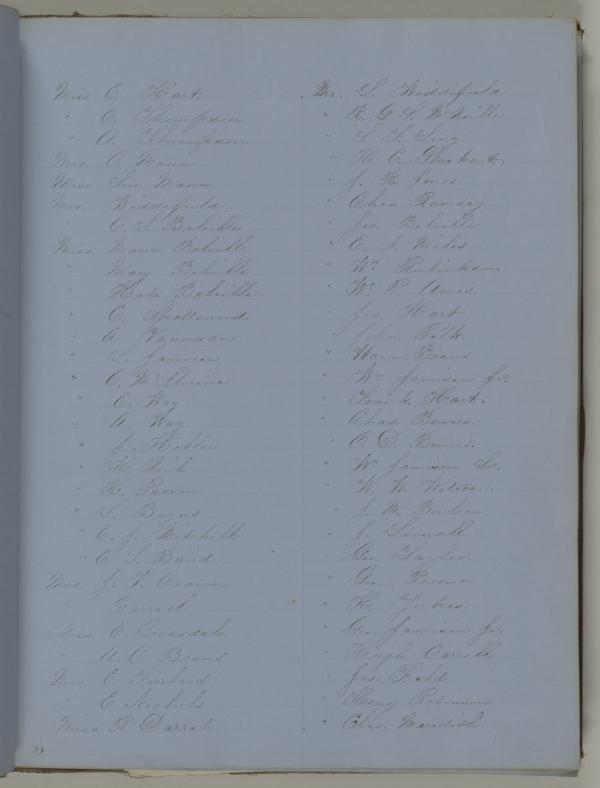 Miss E. Hart.
" E. Thompson
" A. Thompson
Mrs. C. Mann
Miss Sue Mann
Mrs. Widdifield.
" C. S. Belville
Miss Maria Belville
" Mary Belville
" Kate Belville
" C. Spottswood
" A. Vanuxan
" S. Janvier
" C. McElwine
" E. Way
" A. Way
" J.
" K. Rich
" H. Parson
" S.
" E. J. Mitchell
" E. S. Baird
Mrs. J. V. Craven
" Carrell
Miss E. Croasdale
" A. C. Beans
Mrs. E. Kneland
" E. Nichols
Miss R Darrah
39
Mr. S. Widdifield
" R. G. S. McNeille
" S. F. Long
" H. C.
" J. R. Jones
" Chas. Ramsey
" Jno. Belville
" E. H. Miles
" Wm.
" Wm. P. Ames.
" Jos. Hart
" John Polk.
" Harm. Beans
" Wm. Jamison Jr.
" Frank Hart.
" Chas. Bowers.
" O. D. Bowers.
" Wm Jamison Sr.
" W. W. Watson.
" J. M. Barban
" J.
" Geo. Taylor
" Geo. Brown
" H. Yerkes.
" Geo. Jamison Jr.
" Hugh Carrell
" Jas. Field
" Henry Robinson
" Chas. Meredith.